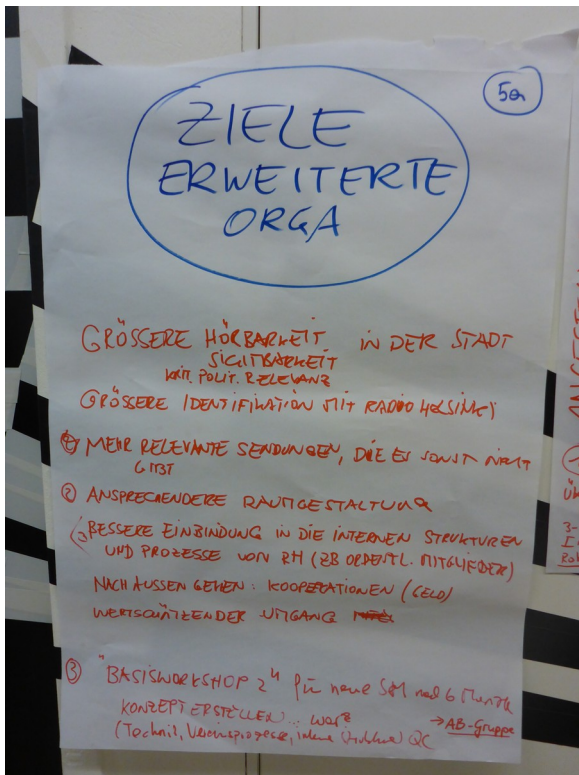 5a
ZIELE
ERWEITERTE
ORGA
GRÖSSERE HÖRBARKEIT IN DER STADT
SICHTBARKEIT
KRIT. POLIT. RELEVANZ
GRÖSSERE IDENTIFIKATION MIT RADIO HELSINKI
MEHR RELEVANTE SENDUNGEN, DIE ES SONST NICHT
GIBT
② ANSPRECHENDERE RAUMGESTALTUNG
BESSERE EINBINDUNG IN DIE INTERNEN STRUKTUREN
UND PROZESSE VON RH (ZB ORDENTL. MITGLIEDER)
NACH AUSSEN GEHEN: KOOPERATIONEN (GELD)
WERTSCHÄTZENDER UMGANG
③ "BASISWORKSHOP 2" für neue SM nach 6 Monate
KONZEPT ERSTELLEN... was?
→ AB-Gruppe
(Technik, Vereinsprozesse, interne QC